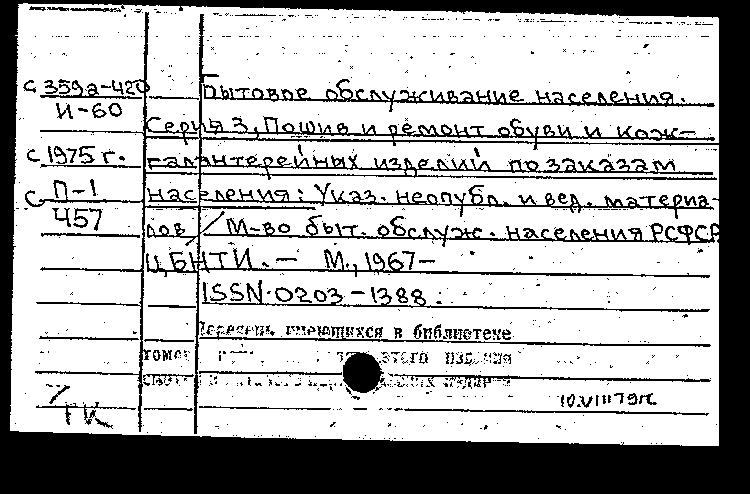 с 359а-420 Бытовое обслуживание населения.
И-60
Серия 3, Пошив и ремонт обуви и кож-
с 1975 г. галантерейных изделий по заказам
с П-1 населения: Указ. неопубл. и вед. материа-
457 лов / М-во быт. обслуж. населения РСФСР
ЦБНТИ. — М., 1967—
ISSN 0203-1388.
Перечень имеющихся в библиотеке
томов этого издания
ГК
10.VIII 79